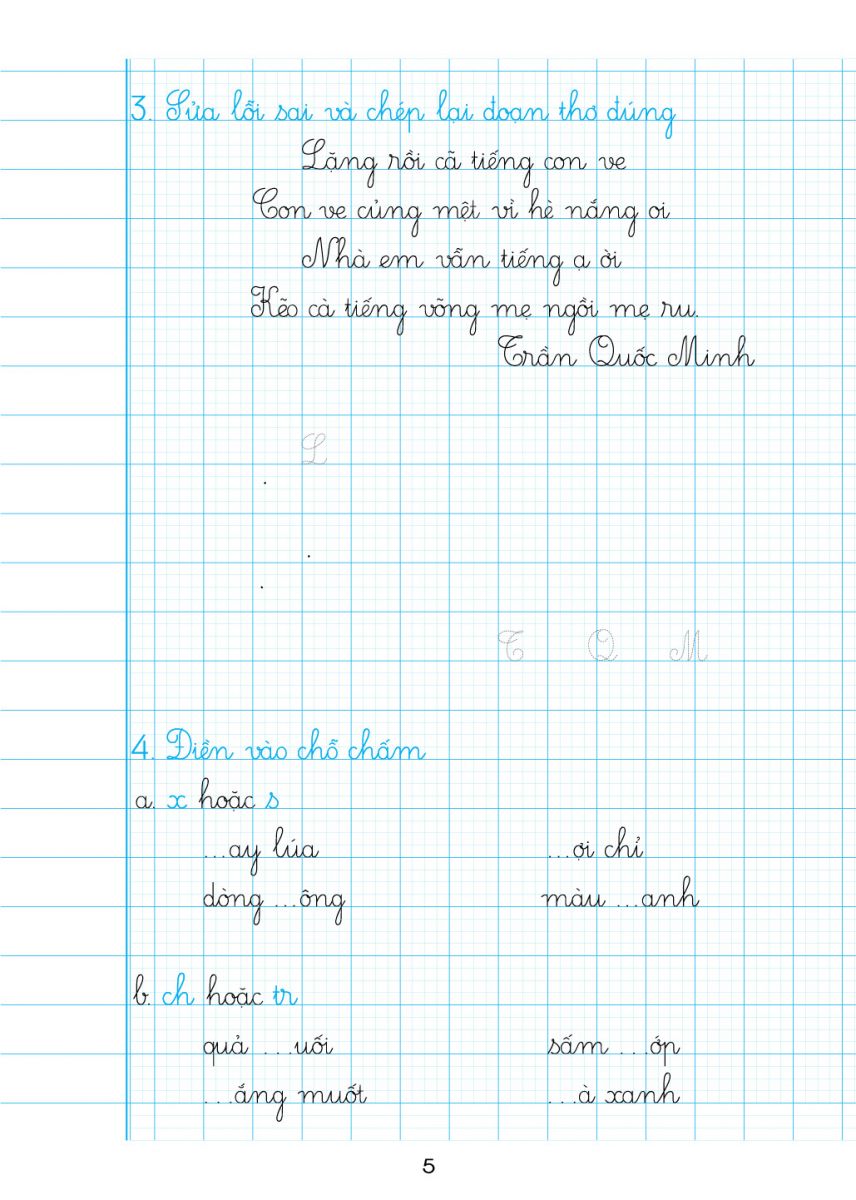 3. Sửa lỗi sai và chép lại đoạn thơ đúng
Lặng rồi cã tiếng con ve
Con ve củng mệt vỉ hè nắng oi
Nhà em vẫn tiếng ạ ời
Kẽo cà tiếng võng mẹ ngồi mẹ ru.
Trần Quốc Minh
L
T Q M
4. Điền vào chỗ chấm
a. x hoặc s
...ay lúa ...ợi chỉ
dòng ...ông màu ...anh
b. ch hoặc tr
quả ...uối sấm ...ớp
...ắng muốt ...à xanh
5